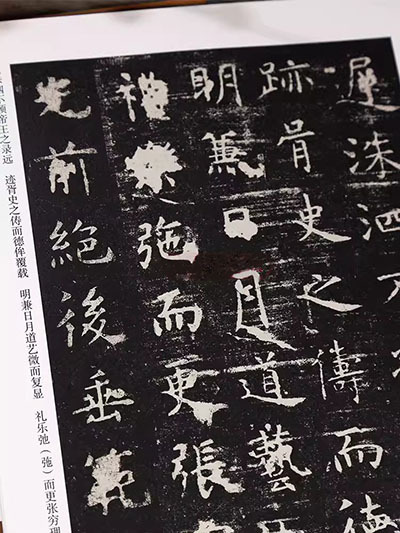 遲洙泗不
跡胥史之儔而德
明兼日月道藝
禮樂弛而更張
光前絕後垂範
不预帝王之录远　迹胥史之俦而德侔覆载　明兼日月道艺微而复显　礼乐弛（㢮）而更张穷理